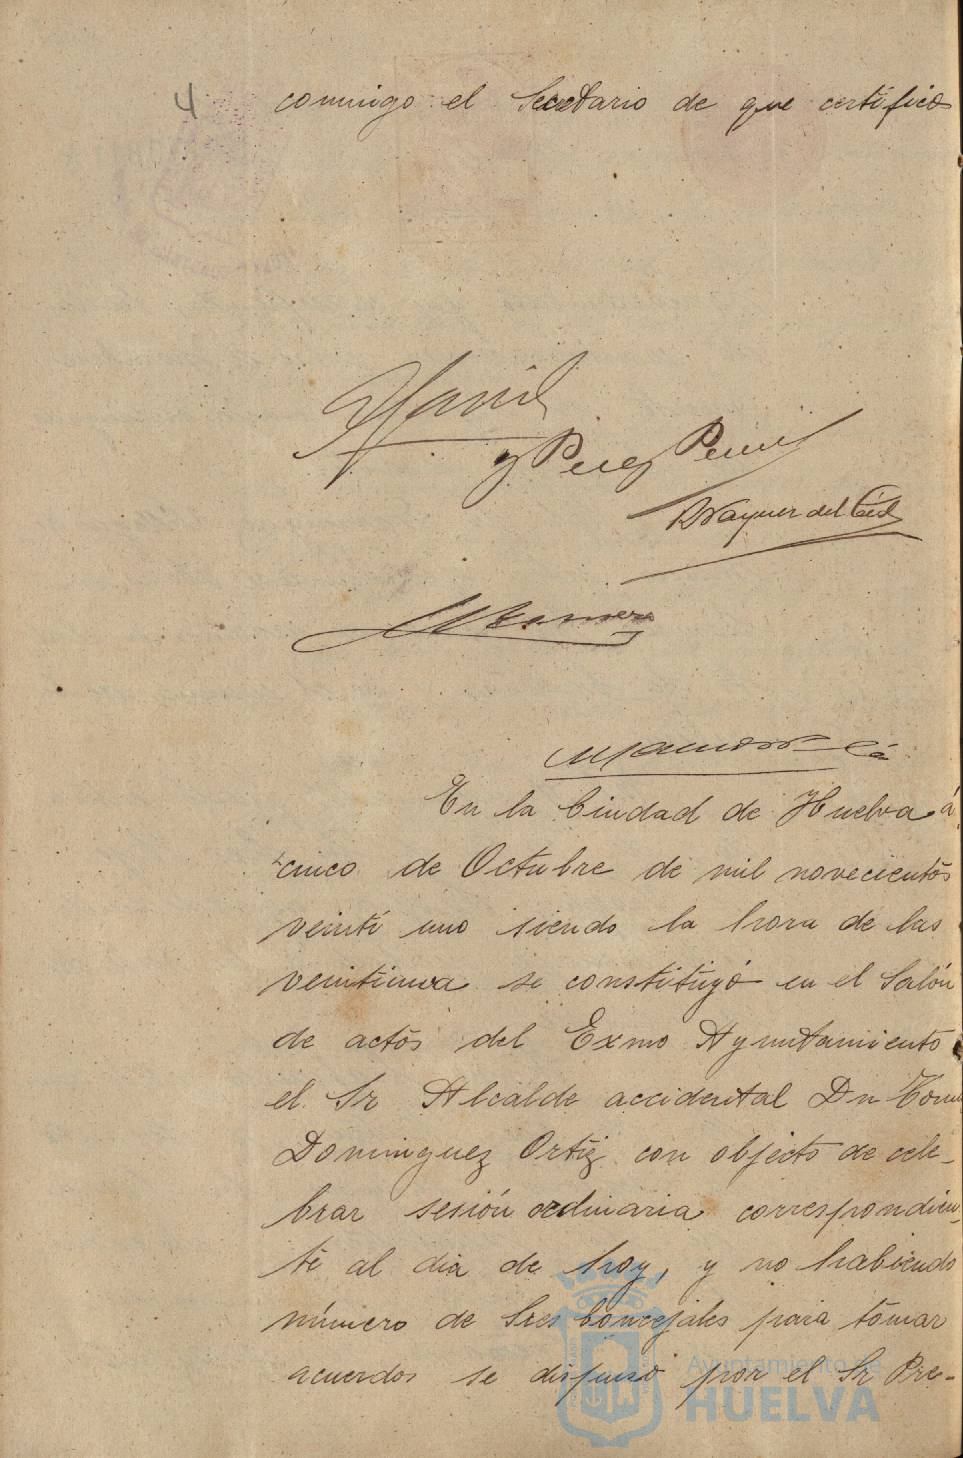 4
conmigo el Secretario de que certifico
y Perez
Vazquez del Cid
En la Ciudad de Huelva á
cinco de Octubre de mil novecientos
veinti uno siendo la hora de las
veintiuna se constituyó en el Salón
de actos del Exmo Ayuntamiento
el Sr Alcalde accidental Dn
Dominguez Ortiz con objecto de cele-
brar sesión ordinaria correspondien-
te al dia de hoy, y no habiendo
número de Sres Concejales para tomar
acuerdos se dispuso por el Sr Pre-
Ayuntamiento de
HUELVA